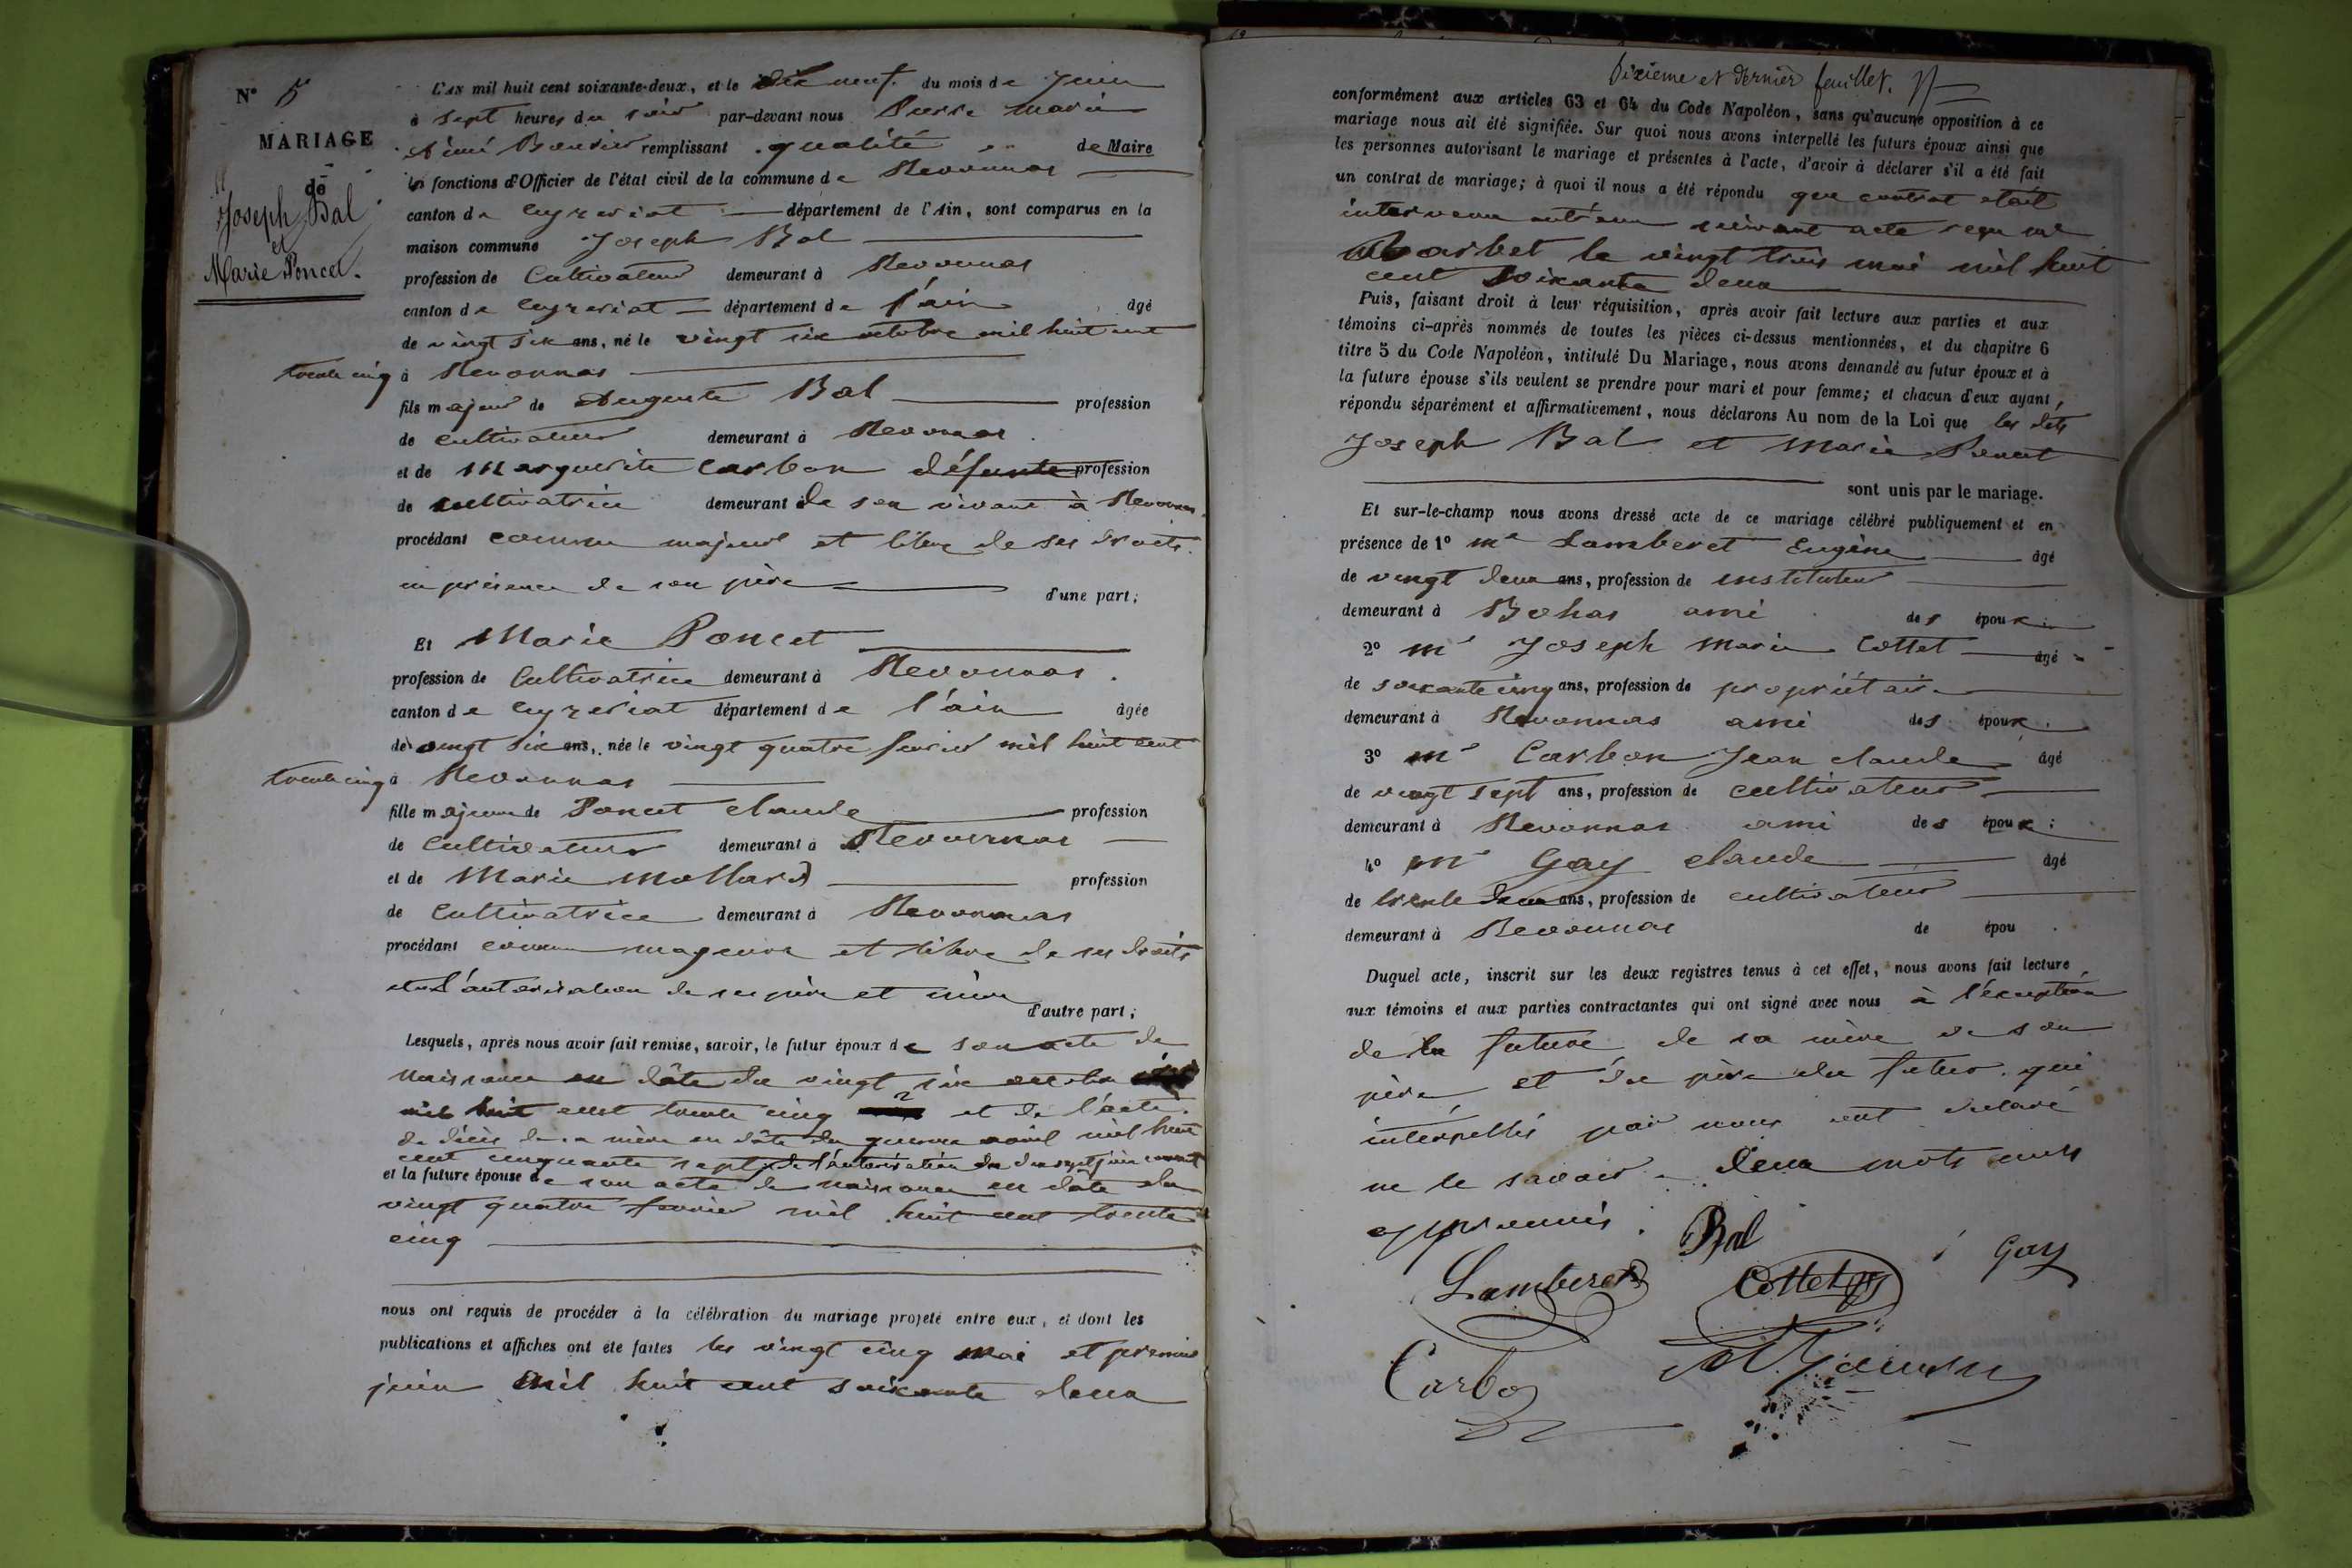 N° 5
MARIAGE
de
Joseph Bal
et
Marie Poncet.
L'an mil huit cent soixante-deux, et le dix neuf du mois de Juin
à sept heures du soir par-devant nous Pierre Marie
Aimé remplissant qualité de Maire
les fonctions d'Officier de l'état civil de la commune de Revonnas
canton de Ceyzeriat département de l'Ain, sont comparus en la
maison commune Joseph Bal
profession de Cultivateur demeurant à Revonnas
canton de Ceyzeriat département de l'ain âgé
de vingt six ans, né le vingt six octobre mil huit cent
trente cinq à Revonnas
fils majeur de Auguste Bal profession
de cultivateur demeurant à Revonnas
et de Marguerite Carbon défunte profession
de cultivatrice demeurant de son vivant à Revonnas
procédant comme majeur et libre de ses droits
en présence de son père d'une part;
Et Marie Poncet
profession de Cultivatrice demeurant à Revonnas
canton de Ceyzeriat département de l'ain âgée
de vingt six ans, née le vingt quatre fevrier mil huit cent
trente cinq à Revonnas
fille majeure de Poncet claude profession
de Cultivateur demeurant à Revonnas
et de Marie Mollard profession
de Cultivatrice demeurant à Revonnas
procédant comme mageure et libre de ses droits
l'autorisation de ses père et mère d'autre part;
Lesquels, après nous avoir fait remise, savoir, le futur époux de son acte de
naissance en dâte du vingt six octobre
mil huit cent trente cinq et de l'acte
de décès de sa mère en dâte du quinze avril mil huit
cent cinquante sept de l'autorisation du dix sept juin courant
et la future épouse de son acte de naissance en dâte du
vingt quatre fevrier mil huit cent trente
cinq
nous ont requis de procéder à la célébration du mariage projeté entre eux, et dont les
publications et affiches ont été faites les vingt cinq mai et premier
juin mil huit cent soixante deux
Dixieme et dernier feuillet.
conformément aux articles 63 et 64 du Code Napoléon, sans qu'aucune opposition à ce
mariage nous ait été signifiée. Sur quoi nous avons interpellé les futurs époux ainsi que
les personnes autorisant le mariage et présentes à l'acte, d'avoir à déclarer s'il a été fait
un contrat de mariage; à quoi il nous a été répondu que contrat était
intervenu entr'eux suivant acte reçu me
Barbet le vingt trois mai mil huit
cent soixante deux
Puis, faisant droit à leur réquisition, après avoir fait lecture aux parties et aux
témoins ci-après nommés de toutes les pièces ci-dessus mentionnées, et du chapitre 6
titre 5 du Code Napoléon, intitulé Du Mariage, nous avons demandé au futur époux et à
la future épouse s'ils veulent se prendre pour mari et pour femme; et chacun d'eux ayant
répondu séparément et affirmativement, nous déclarons Au nom de la Loi que les dits
Joseph Bal et Marie Poncet
sont unis par le mariage.
Et sur-le-champ nous avons dressé acte de ce mariage célébré publiquement et en
présence de 1° mr Lamberet Eugène âgé
de vingt deux ans, profession de instituteur
demeurant à Bohas ami des époux
2° mr Joseph Marie Cottet âgé
de soixante cinq ans, profession de propriétaire
demeurant à Revonnas ami des époux.
3° mr Carbon Jean claude âgé
de vingt sept ans, profession de cultivateur
demeurant à Revonnas ami des époux;
4° mr Gay claude âgé
de trente deux ans, profession de cultivateur
demeurant à Revonnas de épou .
Duquel acte, inscrit sur les deux registres tenus à cet effet, nous avons fait lecture
aux témoins et aux parties contractantes qui ont signé avec nous à l'exception
de la future de sa mère de son
père et du père du futur, qui
interpellés par nous ont déclaré
ne le savoir. Deux mots nuls
approuvés.
Bal
Gay
Lamberet
Cottet
Carbon